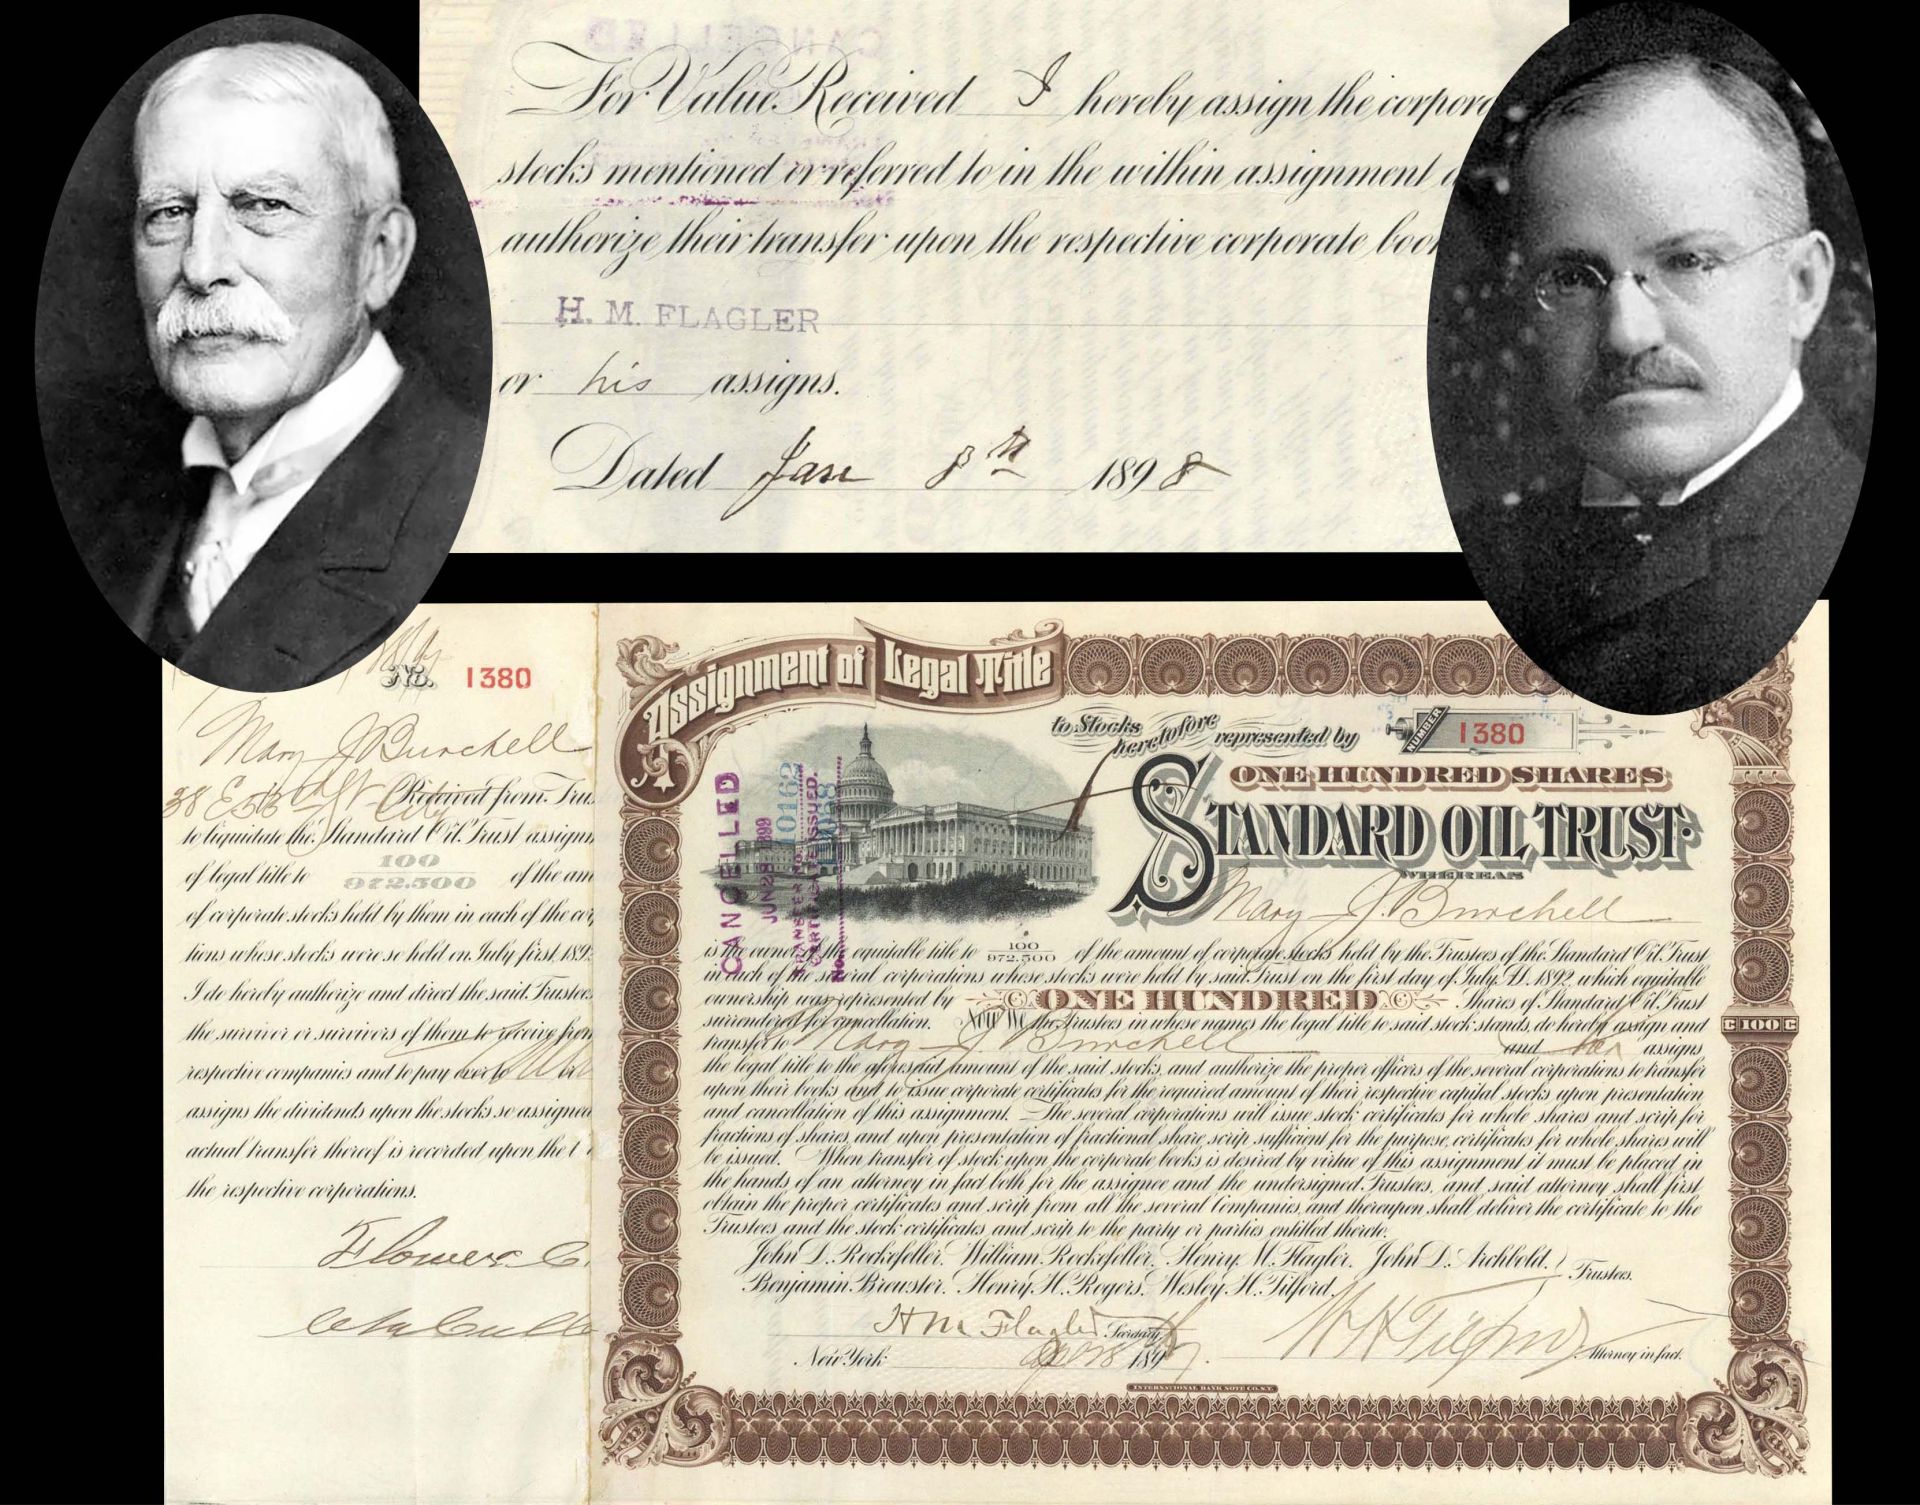 CANCELLED
For Value Received I hereby assign the corpora
stocks mentioned or referred to in the within assignment
authorize their transfer upon the respective corporate boo
H. M. FLAGLER
or his assigns.
Dated Jan 8th 1898
No. 1380
Mary J Burchell
38 E 53 St City Received from Trus
to liquidate the Standard Oil Trust assignm
of legal title to 100/972.500 of the am
of corporate stocks held by them in each of the cor
tions whose stocks were so held on July first, 189
I do hereby authorize and direct the said Trustees
the survivor or survivors of them to receive from
respective companies and to pay over to
assigns the dividends upon the stocks so assigned
actual transfer thereof is recorded upon the
the respective corporations.
Flower & C
Assignment of Legal Title
to Stocks heretofore represented by
NUMBER 1380
ONE HUNDRED SHARES
STANDARD OIL TRUST.
WHEREAS
Mary J. Burchell
CANCELLED
JUN 28 1899
TRANSFER NO. 10162
CERTIFICATE ISSUED.
NO.
is the owner of the equitable title to 100/972.500 of the amount of corporate stocks held by the Trustees of the Standard Oil Trust
in each of the several corporations whose stocks were held by said Trust on the first day of July A.D. 1892, which equitable
ownership was represented by ONE HUNDRED Shares of Standard Oil Trust
surrendered for cancellation. Now We the Trustees in whose names the legal title to said stock stands, do hereby assign and
transfer to Mary J. Burchell and her assigns
the legal title to the aforesaid amount of the said stocks, and authorize the proper officers of the several corporations to transfer
upon their books and to issue corporate certificates for the required amount of their respective capital stocks upon presentation
and cancellation of this assignment. The several corporations will issue stock certificates for whole shares and scrip for
fractions of shares, and upon presentation of fractional share scrip sufficient for the purpose, certificates for whole shares will
be issued. When transfer of stock upon the corporate books is desired by virtue of this assignment it must be placed in
the hands of an attorney in fact both for the assignee and the undersigned Trustees, and said attorney shall first
obtain the proper certificates and scrip from all the several Companies, and thereupon shall deliver the certificate to the
Trustees and the stock certificates and scrip to the party or parties entitled thereto.
John D. Rockefeller, William Rockefeller, Henry M. Flagler, John D. Archbold,
Benjamin Brewster, Henry H. Rogers, Wesley H. Tilford. } Trustees.
H M Flagler Secretary
W H Tilford Attorney in fact.
New York 189
INTERNATIONAL BANK NOTE CO. N.Y.
C 100 C